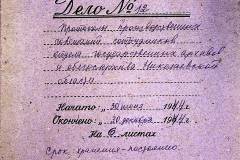 Дело № 12
Протоколы производственных
совещаний сотрудников
отдела государственных архивов
и облгосархива Николаевской
области
Начато: „30" 1944 г.
Окончено: „20" декабря 1944 г.
На 6 листах
Срок хранения - постоянно.